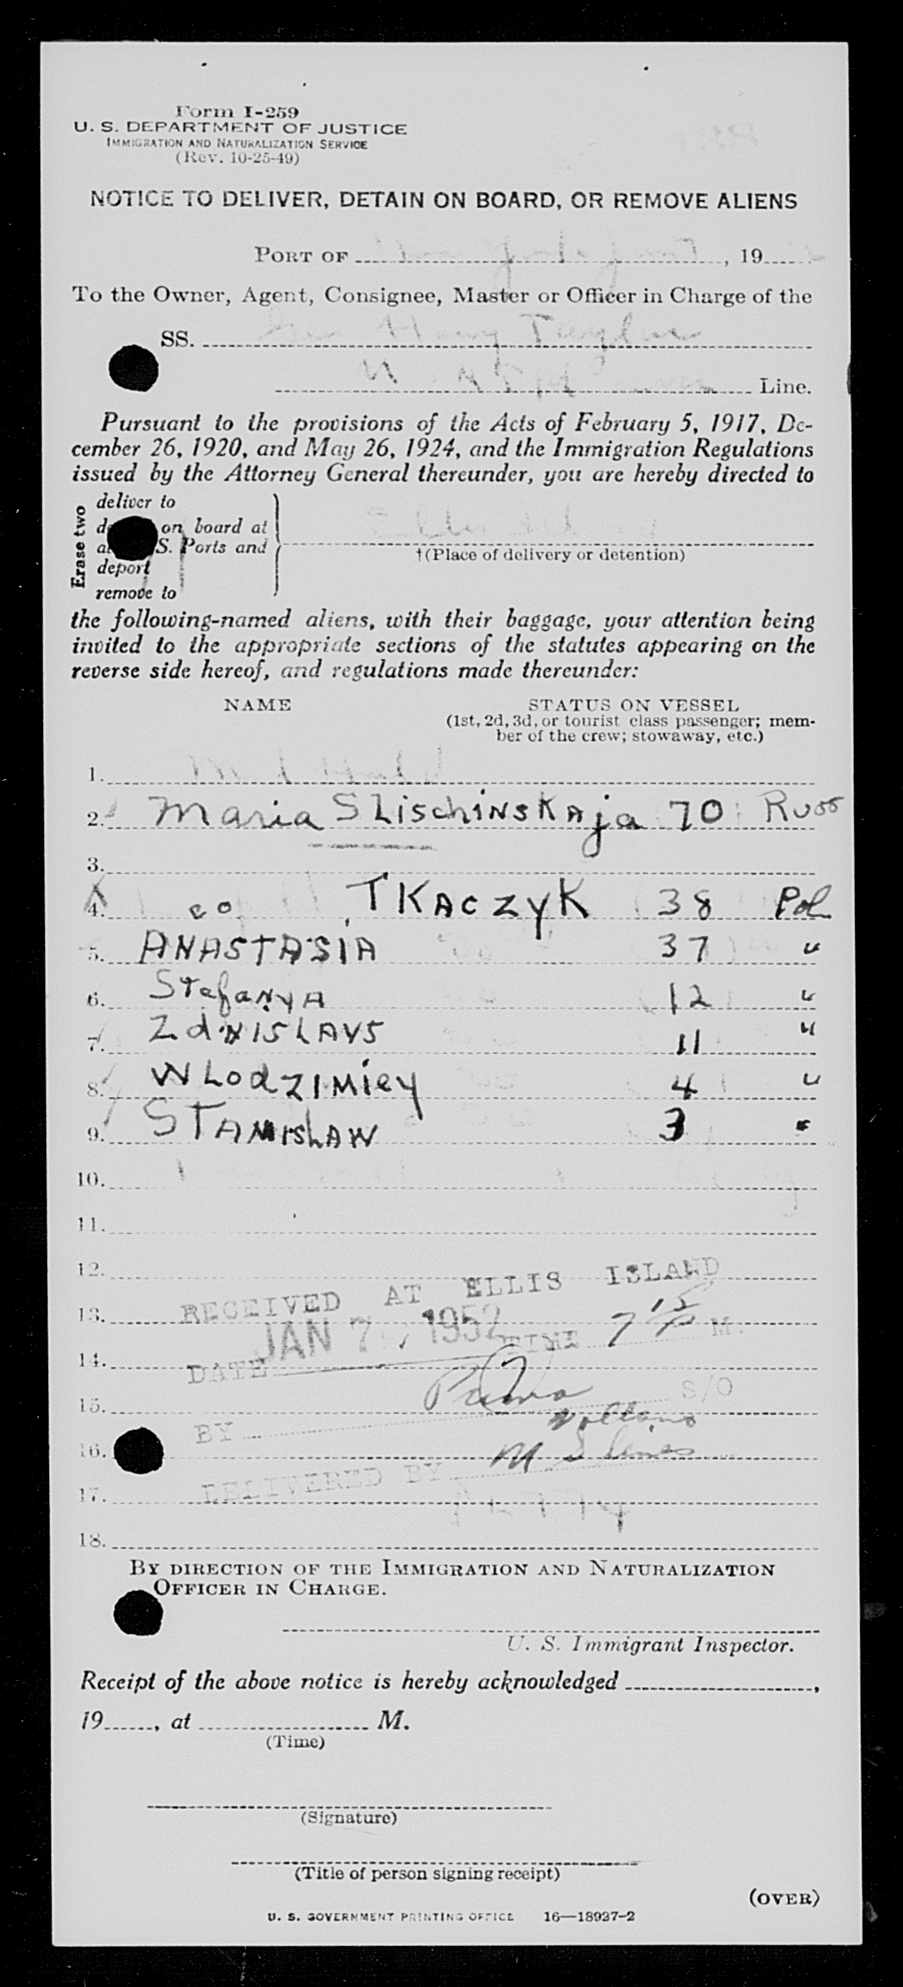 Form I-259
U. S. DEPARTMENT OF JUSTICE
IMMIGRATION AND NATURALIZATION SERVICE
(Rev. 10-25-49)
NOTICE TO DELIVER, DETAIN ON BOARD, OR REMOVE ALIENS
PORT OF , 19
To the Owner, Agent, Consignee, Master or Officer in Charge of the
SS. Taylor
Line.
Pursuant to the provisions of the Acts of February 5, 1917, De-
cember 26, 1920, and May 26, 1924, and the Immigration Regulations
issued by the Attorney General thereunder, you are hereby directed to
Erase two
deliver to
on board at
S. Ports and
deport
remove to
†(Place of delivery or detention)
the following-named aliens, with their baggage, your attention being
invited to the appropriate sections of the statutes appearing on the
reverse side hereof, and regulations made thereunder:
NAME STATUS ON VESSEL
(1st, 2d, 3d, or tourist class passenger; mem-
ber of the crew; stowaway, etc.)
1.
2. Maria SLischinskaja 70 Russ
3.
4. TKACZYK 38 Pol
5. ANASTASIA 37 "
6. Stefanya 12 "
7. 11 "
8. WLodzimiey 4 "
9. STANISLAW 3 "
10.
11.
12.
13.
14.
15.
16.
17.
18.
RECEIVED AT ELLIS ISLAND
DATE JAN 7, 1952 TIME 7 15 P M.
BY S/O
DELIVERED BY
BY DIRECTION OF THE IMMIGRATION AND NATURALIZATION
OFFICER IN CHARGE.
U. S. Immigrant Inspector.
Receipt of the above notice is hereby acknowledged ,
19 , at M.
(Time)
(Signature)
(Title of person signing receipt)
(OVER)
U. S. GOVERNMENT PRINTING OFFICE 16—18937-2